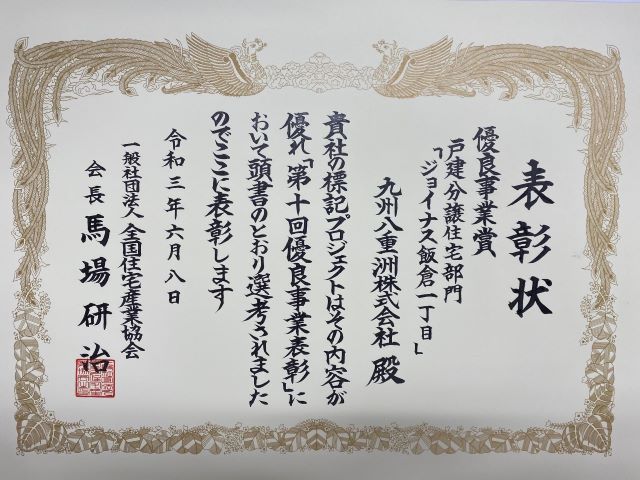 表彰状
優良事業賞
戸建分譲住宅部門
「ジョイナス飯倉一丁目」
九州八重洲株式会社 殿
貴社の標記プロジェクトはその内容が
優れ「第十回優良事業表彰」に
おいて頭書のとおり選考されました
のでここに表彰します
令和三年六月八日
一般社団法人 全国住宅産業協会
会長 馬場研治